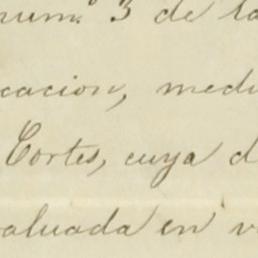 num.º 3 de la
cacion, medi
Cortes, cuya d
valuada en v